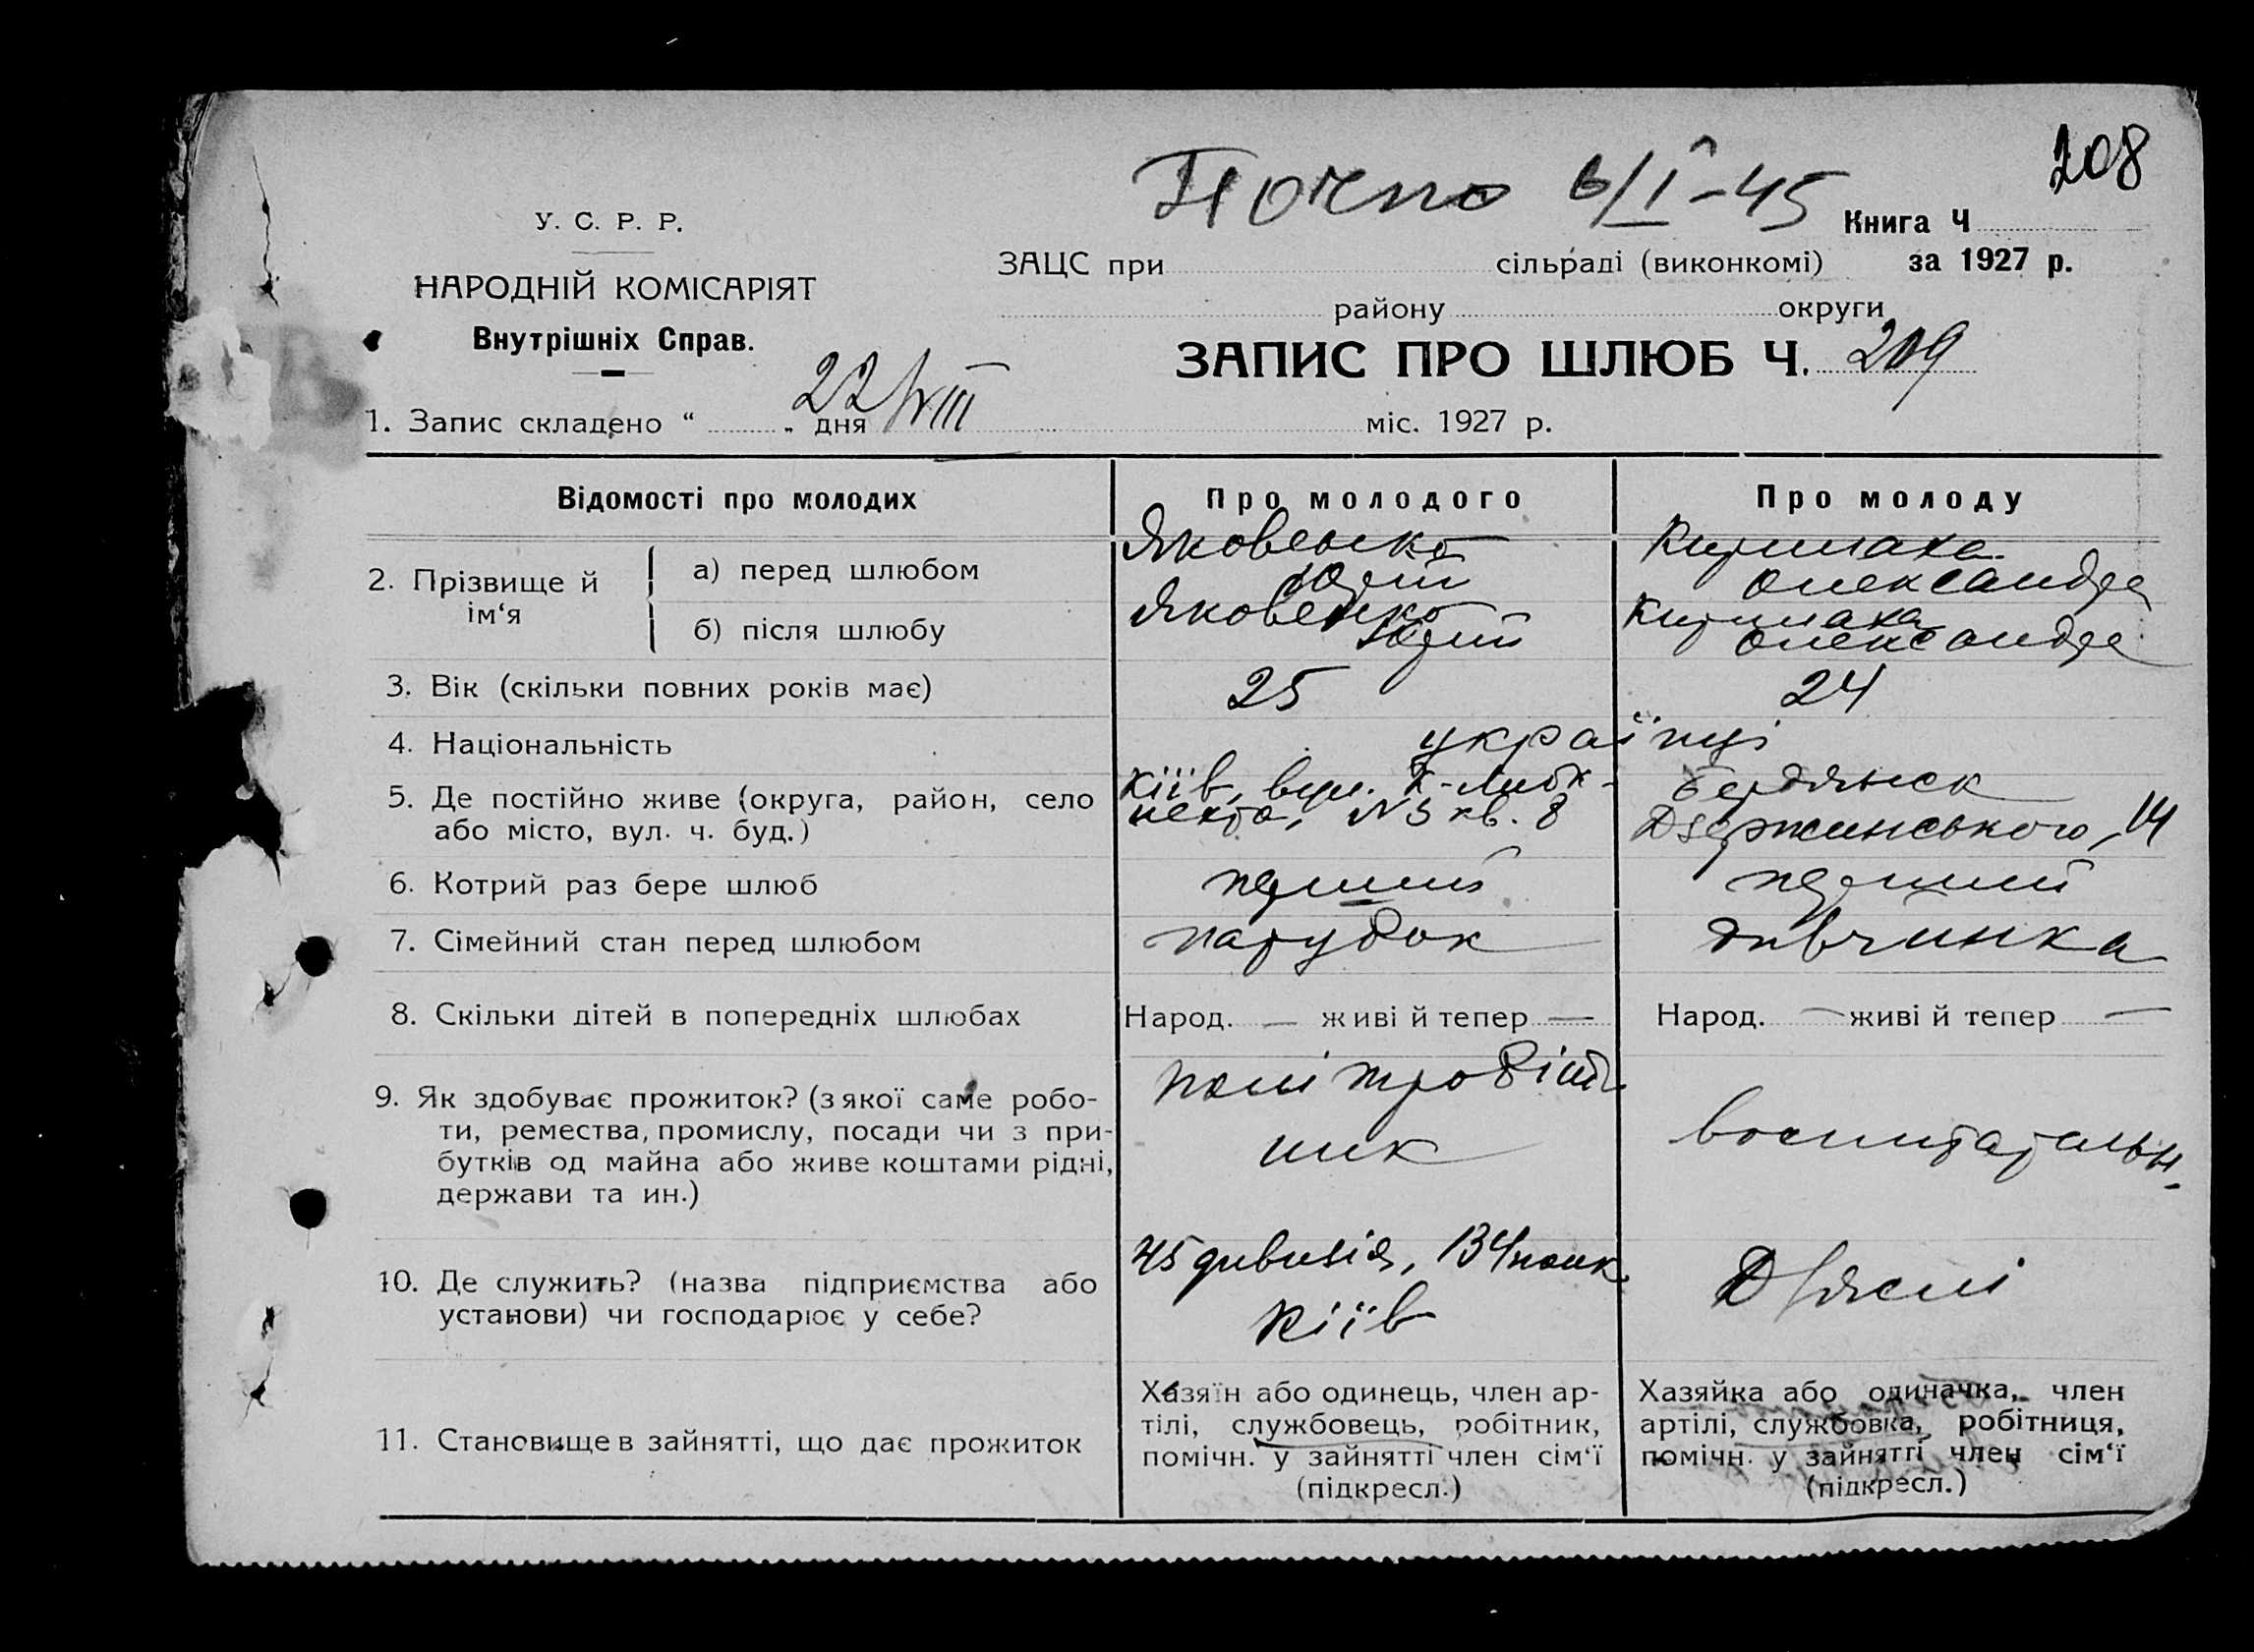 208
6/I-45
Книга Ч
У. С. Р. Р.
ЗАЦС при сільраді (виконкомі) за 1927 р.
НАРОДНІЙ КОМІСАРІЯТ
району округи
Внутрішніх Справ.
ЗАПИС ПРО ШЛЮБ Ч. 209
1. Запис складено “ „ дня 22/VIII міс. 1927 р.
Відомості про молодих
Про молодого
Про молоду
2. Прізвище й ім‘я
а) перед шлюбом
Яковенко
Юрій
Олександра
б) після шлюбу
Яковенко
Юрий
Олександра
3. Вік (скільки повних років має)
25
24
4. Національність
українці
5. Де постійно живе (округа, район, село
або місто, вул. ч. буд.)
Кіїв, вул. К-Либк-
нехта, №3 кв. 8
Бердянск
Дзержинського, 14
6. Котрий раз бере шлюб
перший
перший
7. Сімейний стан перед шлюбом
парубок
дивчинка
8. Скільки дітей в попередніх шлюбах
Народ. — живі й тепер —
Народ. — живі й тепер —
9. Як здобуває прожиток? (з якої саме робо-
ти, ремества, промислу, посади чи з при-
бутків од майна або живе коштами рідні,
держави та ин.)
політробіт
ник
10. Де служить? (назва підприємства або
установи) чи господарює у себе?
45 дивизія, 134 полк
Кіїв
Д/яслі
11. Становище в зайнятті, що дає прожиток
Хазяїн або одинець, член ар-
тілі, службовець, робітник,
помічн. у зайнятті член сім‘ї
(підкресл.)
Хазяйка або одиначка, член
артілі, службовка, робітниця,
помічн. у зайнятті член сім‘ї
(підкресл.)